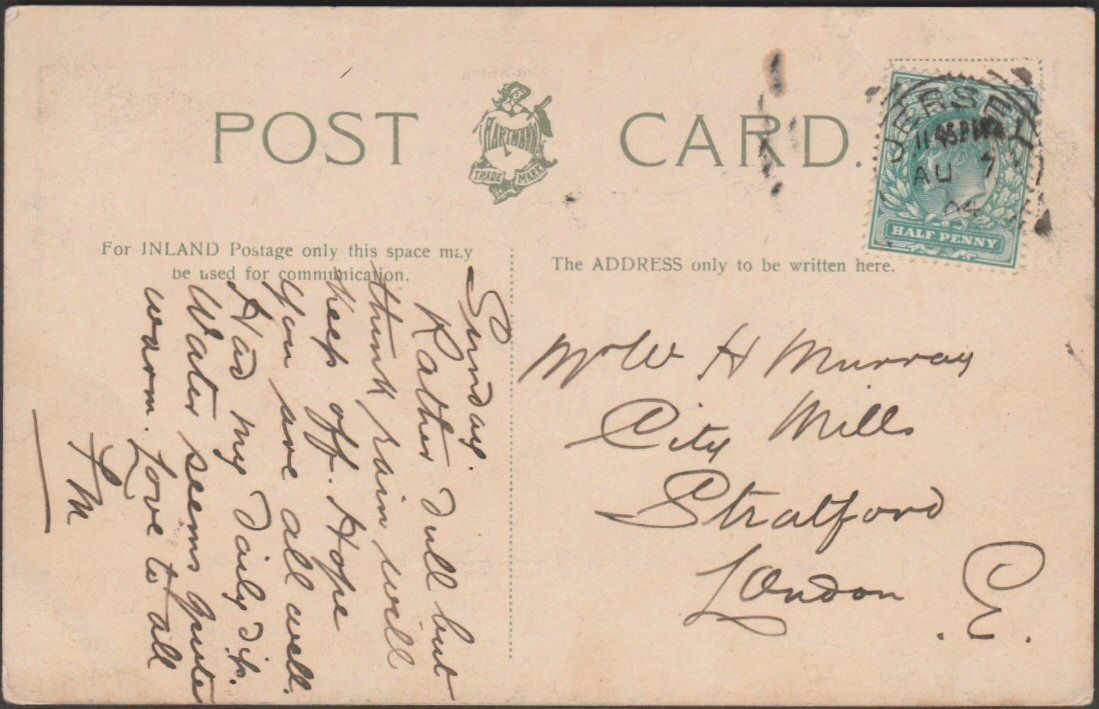 POST CARD.
HARTMANN
TRADE MARK
JERSEY
11.45PM
AU 7
04
HALF PENNY
For INLAND Postage only this space may
be used for communication.
The ADDRESS only to be written here.
Sunday.
Rather dull but
think rain will
keep off. Hope
you are all well.
Had my daily dip.
Water seems quite
warm. Love to all
FM
Mr W H Murray
City Mills
Stratford
London
E.